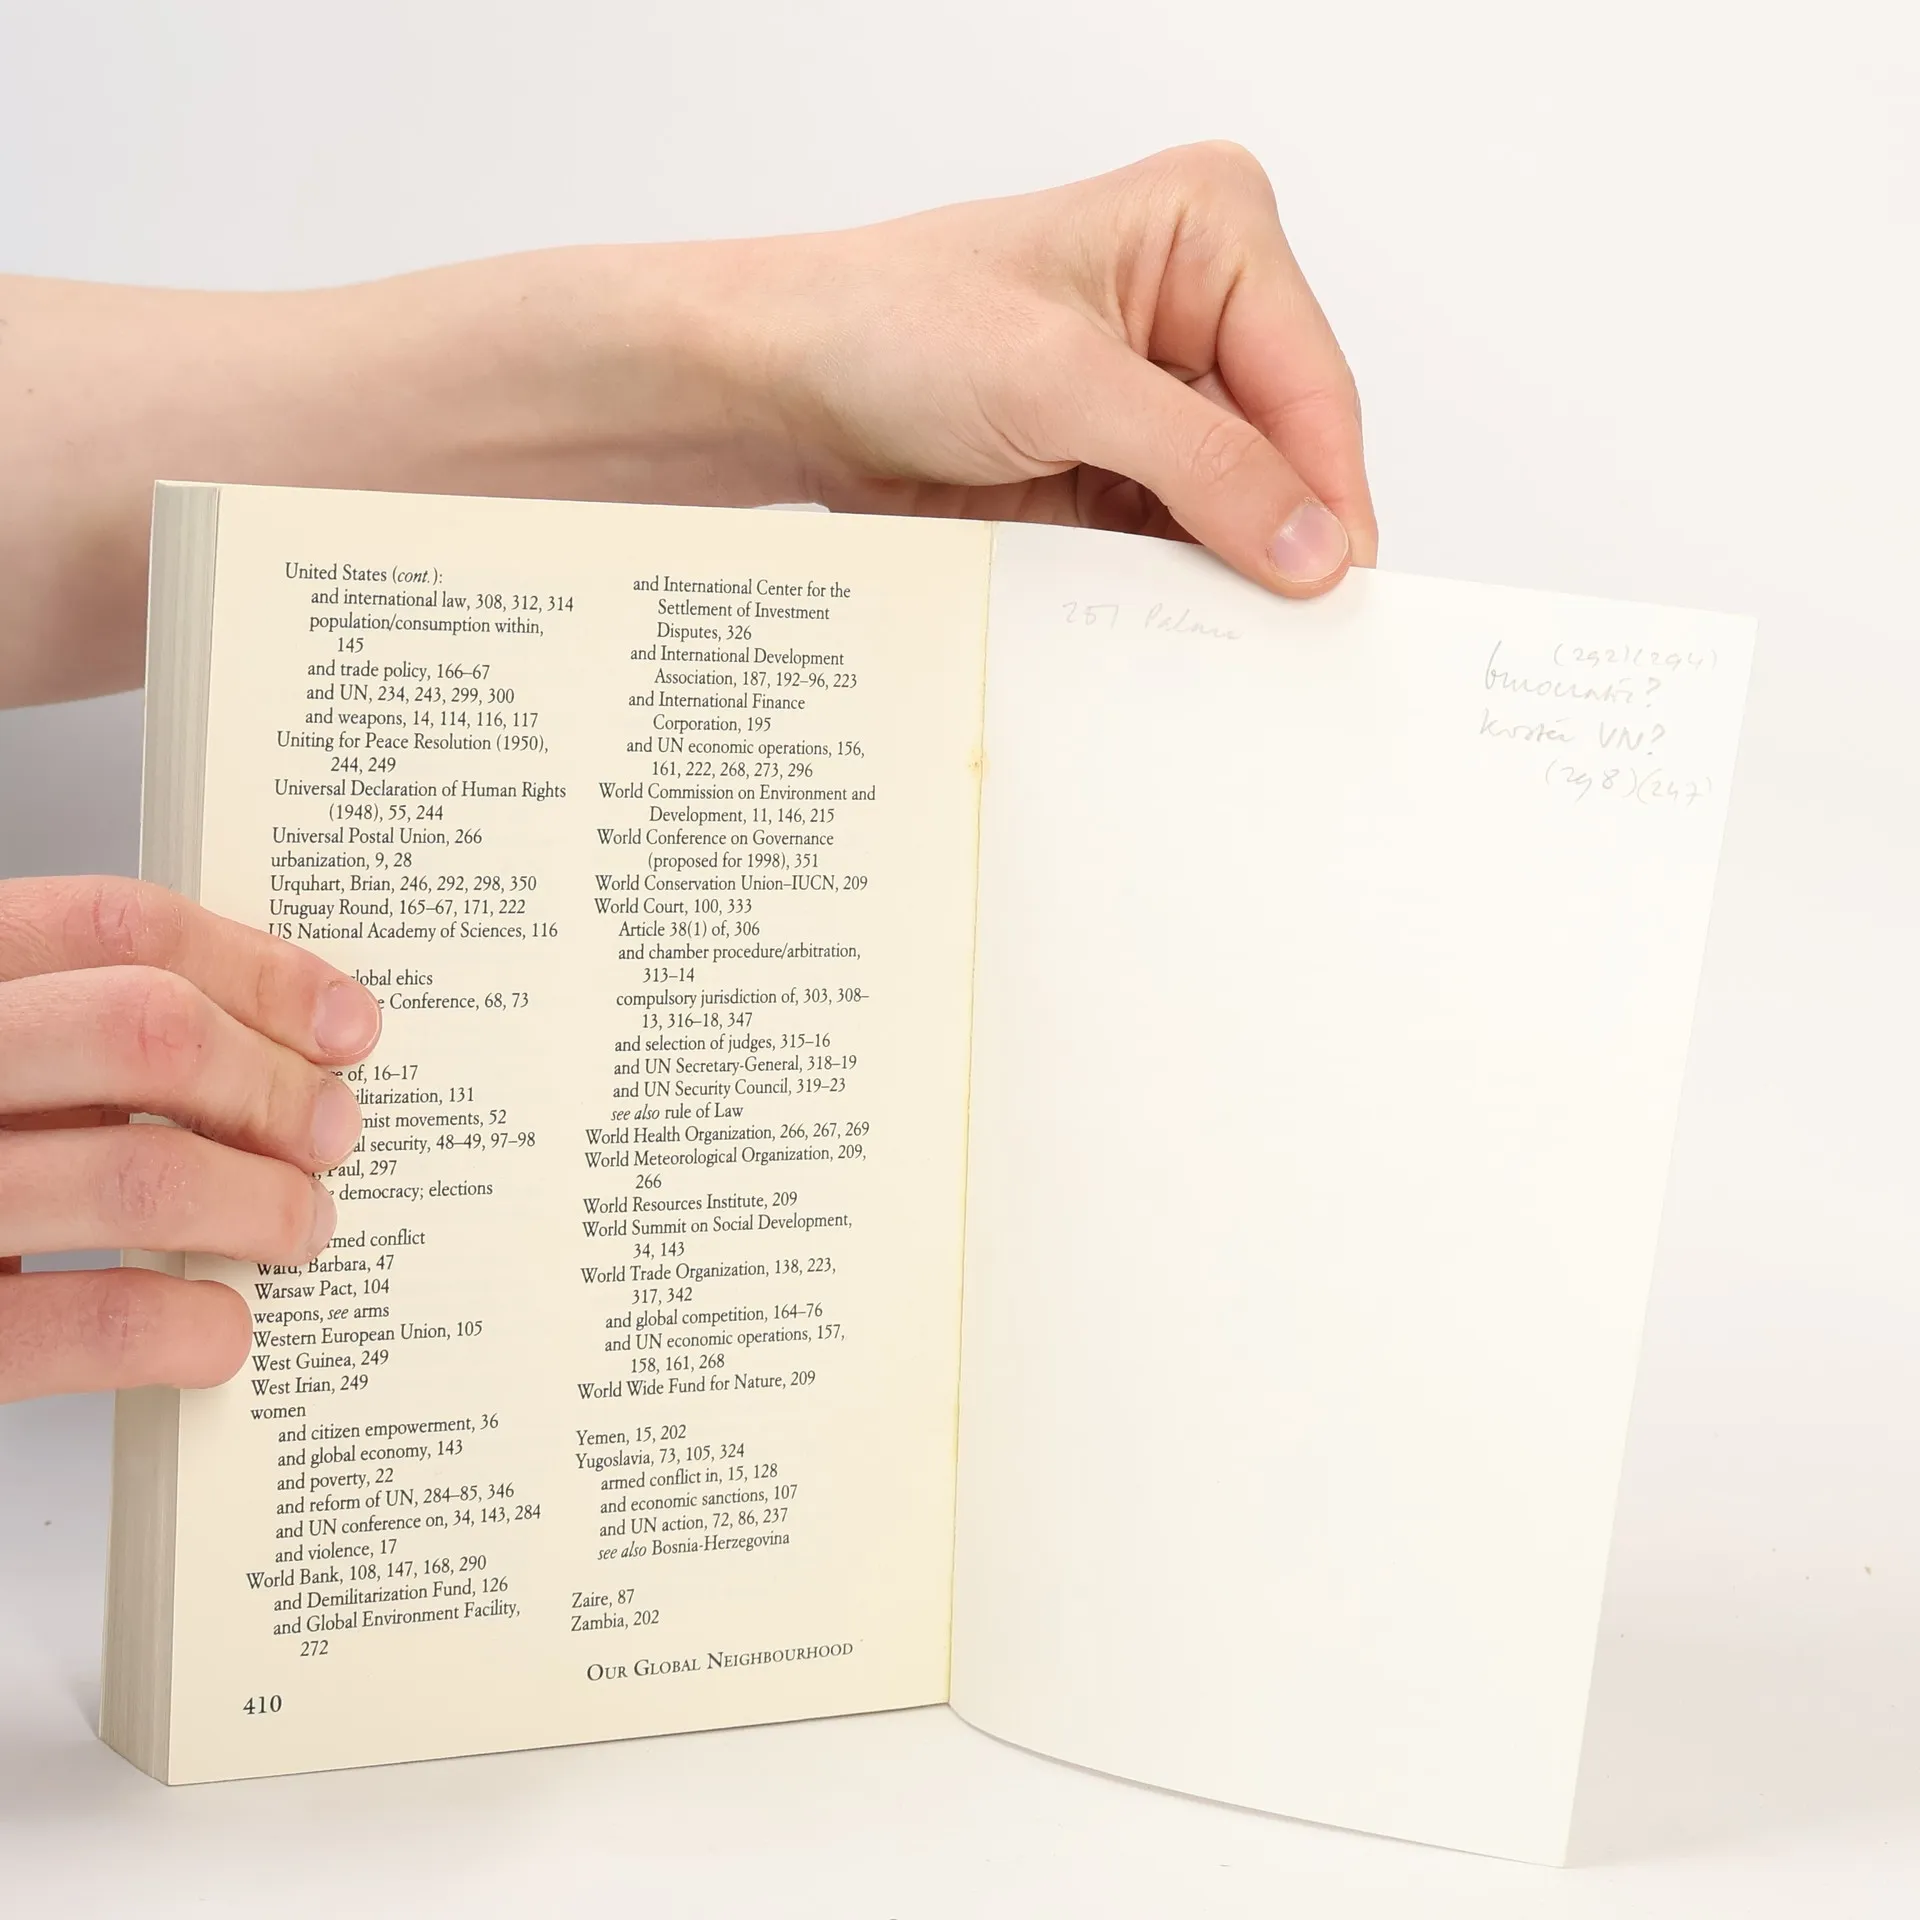 United States (cont.):
and international law, 308, 312, 314
population/consumption within,
145
and trade policy, 166–67
and UN, 234, 243, 299, 300
and weapons, 14, 114, 116, 117
Uniting for Peace Resolution (1950),
244, 249
Universal Declaration of Human Rights
(1948), 55, 244
Universal Postal Union, 266
urbanization, 9, 28
Urquhart, Brian, 246, 292, 298, 350
Uruguay Round, 165–67, 171, 222
US National Academy of Sciences, 116
ehics
Conference, 68, 73
of, 16–17
movements, 52
security, 48–49, 97–98
Paul, 297
democracy; elections
conflict
Ward, Barbara, 47
Warsaw Pact, 104
weapons, see arms
Western European Union, 105
West Guinea, 249
West Irian, 249
women
and citizen empowerment, 36
and global economy, 143
and poverty, 22
and reform of UN, 284–85, 346
and UN conference on, 34, 143, 284
and violence, 17
World Bank, 108, 147, 168, 290
and Demilitarization Fund, 126
and Global Environment Facility,
272
and International Center for the
Settlement of Investment
Disputes, 326
and International Development
Association, 187, 192–96, 223
and International Finance
Corporation, 195
and UN economic operations, 156,
161, 222, 268, 273, 296
World Commission on Environment and
Development, 11, 146, 215
World Conference on Governance
(proposed for 1998), 351
World Conservation Union–IUCN, 209
World Court, 100, 333
Article 38(1) of, 306
and chamber procedure/arbitration,
313–14
compulsory jurisdiction of, 303, 308–
13, 316–18, 347
and selection of judges, 315–16
and UN Secretary-General, 318–19
and UN Security Council, 319–23
see also rule of Law
World Health Organization, 266, 267, 269
World Meteorological Organization, 209,
266
World Resources Institute, 209
World Summit on Social Development,
34, 143
World Trade Organization, 138, 223,
317, 342
and global competition, 164–76
and UN economic operations, 157,
158, 161, 268
World Wide Fund for Nature, 209
Yemen, 15, 202
Yugoslavia, 73, 105, 324
armed conflict in, 15, 128
and economic sanctions, 107
and UN action, 72, 86, 237
see also Bosnia-Herzegovina
Zaire, 87
Zambia, 202
OUR GLOBAL NEIGHBOURHOOD
410
(292)(294)
VN?
(298)(247)